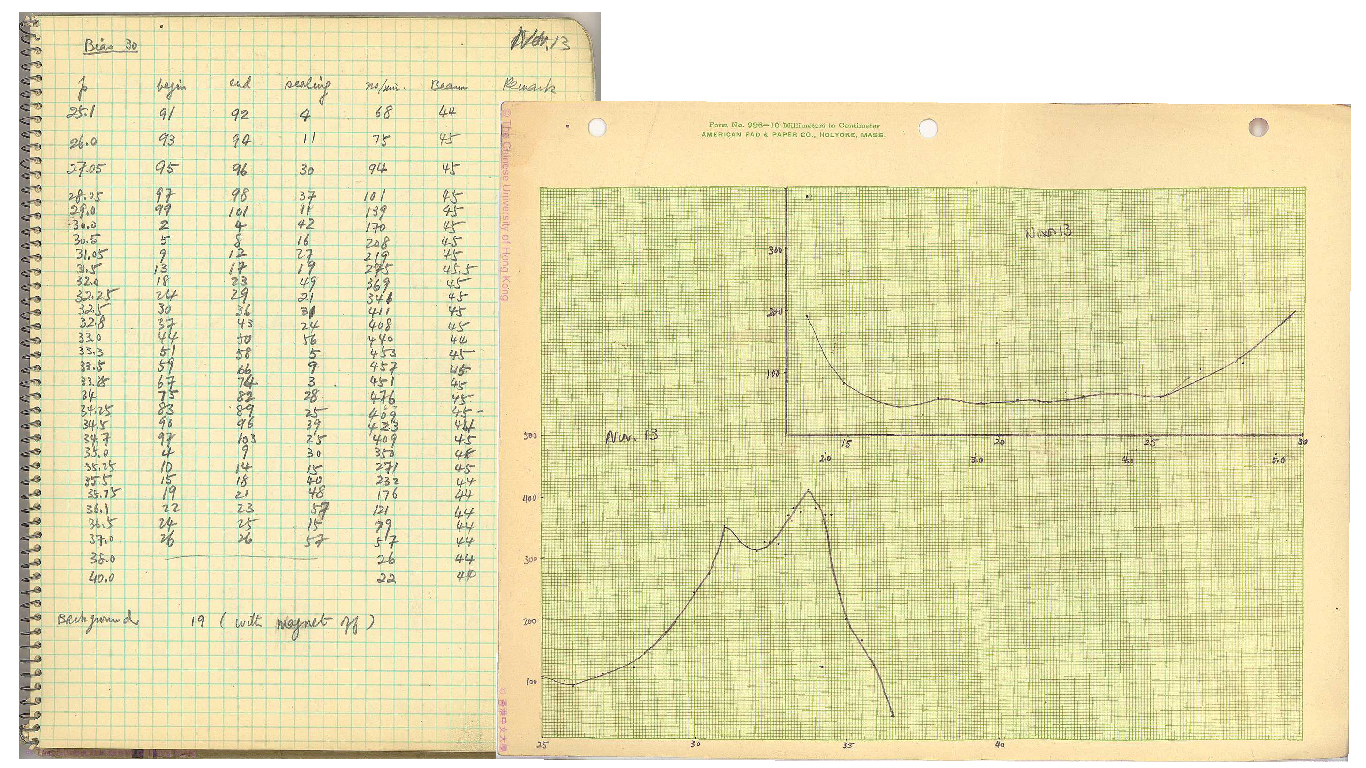 Bias 30
Nov. 13
Ip begin end scaling no/min. Beam Remark
25.1 91 92 4 68 44
26.0 93 94 11 75 45
27.05 95 96 30 94 45
28.25 97 98 37 101 45
29.0 99 101 11 139 45
30.0 2 4 42 170 45
30.5 5 8 16 208 45
31.05 9 12 27 219 45
31.5 13 17 19 275 45.5
32.0 18 23 49 369 45
32.25 24 29 21 346 45
32.5 30 36 31 411 45
32.8 37 43 24 408 45
33.0 44 50 56 440 44
33.3 51 58 5 453 45
33.5 59 66 9 457 45
33.85 67 74 3 451 45
34 75 82 28 476 45
34.25 83 89 25 409 45-
34.5 90 96 39 423 44
34.7 97 103 25 409 45
35.0 4 9 30 350 48
35.25 10 14 15 271 45
35.5 15 18 40 232 44
35.75 19 21 48 176 44
36.1 22 23 57 121 44
36.5 24 25 15 79 44
37.0 26 26 57 57 44
38.0 26 44
40.0 22 44
Background 19 (with magnet off)
© The Chinese University of Hong Kong
© 香港中文大學
Form No. 996—10 Millimeters to Centimeter
AMERICAN PAD & PAPER CO., HOLYOKE, MASS.
Nov. 13
300
200
100
15 20 25 30
2.0 3.0 4.0 5.0
Nov. 13
500
400
300
200
100
25 30 35 40